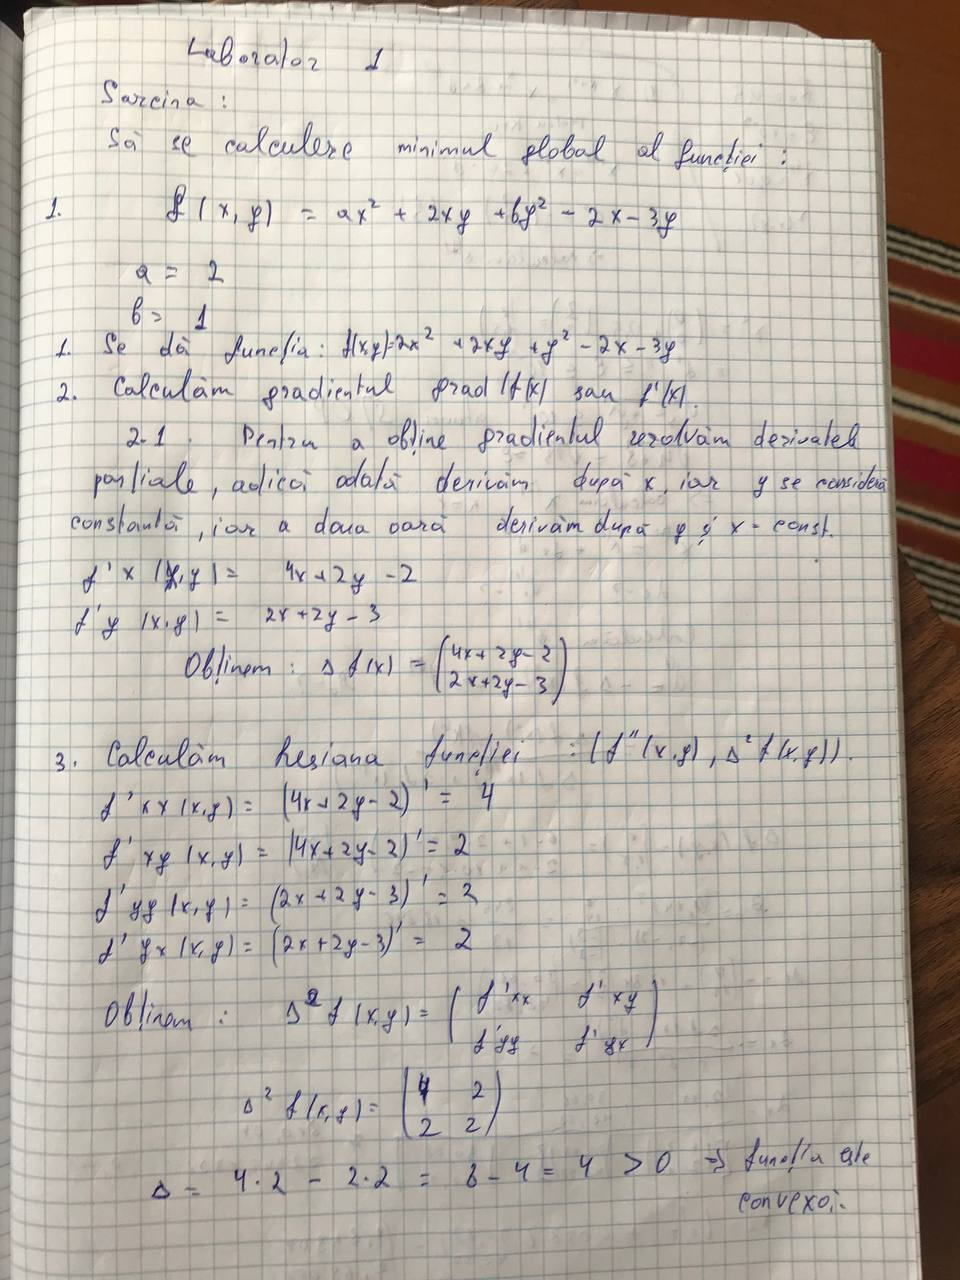 Laborator 1
Sarcina :
Să se calculere minimul global al funcției :
1. f(x,y) = ax² + 2xy + by² - 2x - 3y
a = 2
b = 1
1. Se dă funcția : f(x,y)=2x² + 2xy + y² - 2x - 3y
2. Calculăm gradientul grad f(x) sau f'(x).
2.1. Pentru a obține gradientul rezolvăm derivatele
parțiale, adică odată derivăm după x, iar y se consideră
constantă, iar a doua oară derivăm după y și x - const.
f'x (x,y) = 4x+2y-2
f'y (x,y) = 2x+2y-3
Obținem : Δ f(x) = (4x+2y-2
2x+2y-3)
3. Calculăm hesiana funcției : (f''(x,y), Δ² f(x,y)).
f'xx(x,y) = (4x+2y-2)' = 4
f'xy(x,y) = (4x+2y-2)' = 2
f'yy(x,y) = (2x+2y-3)' = 2
f'yx(x,y) = (2x+2y-3)' = 2
Obținem : Δ² f(x,y) = (f'xx f'xy
f'yy f'yx)
Δ² f(x,y) = (4 2
2 2)
Δ = 4·2 - 2·2 = 8-4 = 4 > 0 => funcția este
convexă.